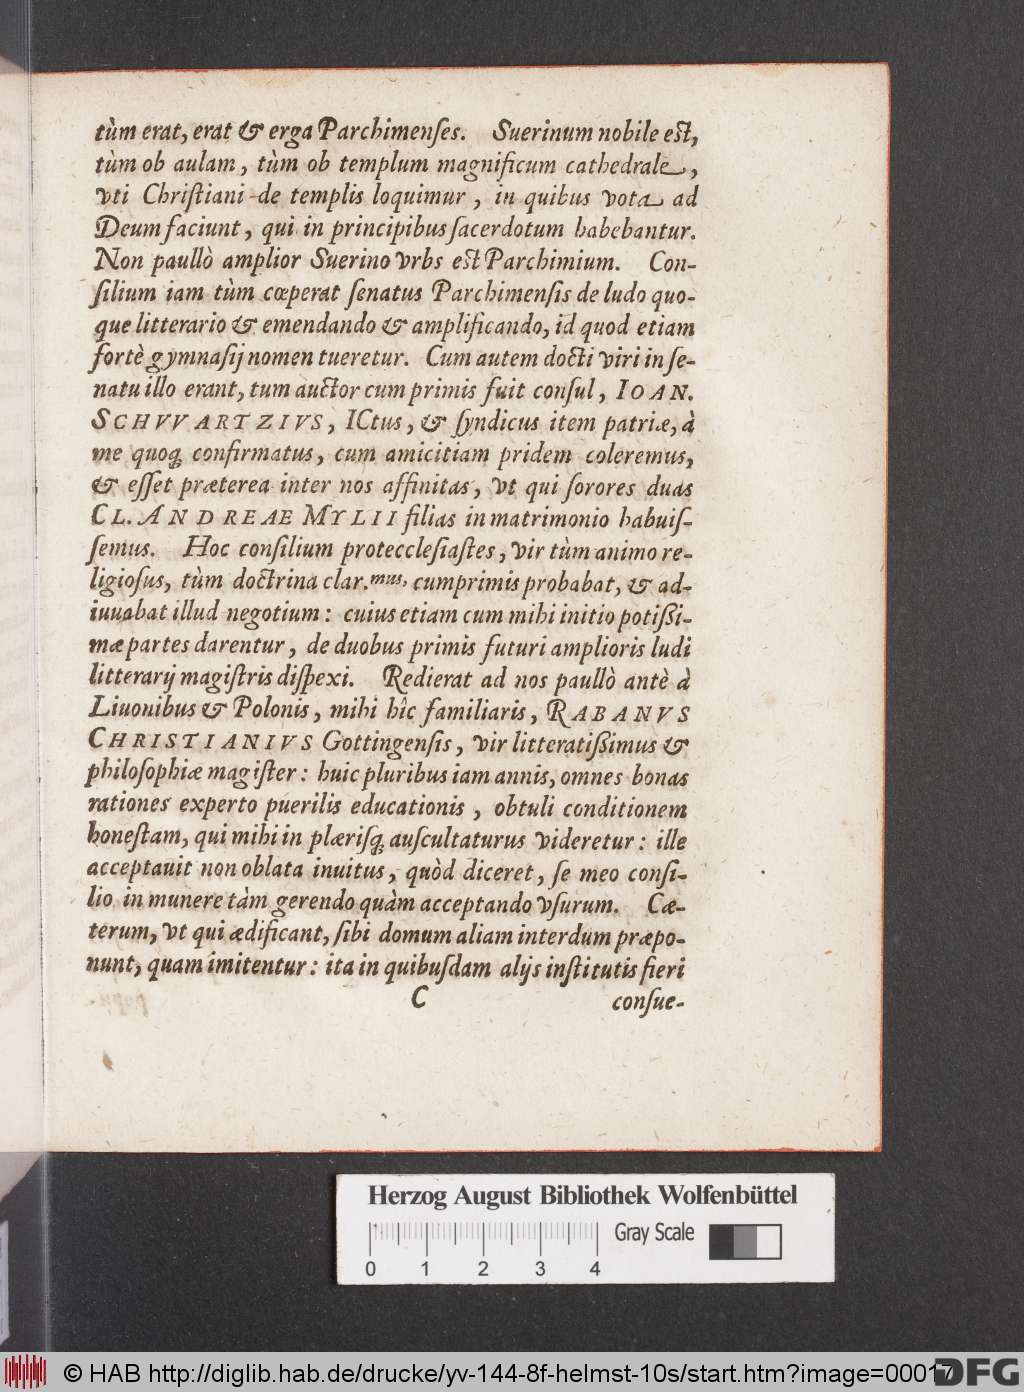 tùm erat, erat & erga Parchimenſes. Suerinum nobile est,
tùm ob aulam, tùm ob templum magnificum cathedrale,
vti Chriſtiani de templis loquimur, in quibus vota ad
Deum faciunt, qui in principibus ſacerdotum habebantur.
Non paullò amplior Suerino vrbs est Parchimium. Con-
ſilium iam tùm cœperat ſenatus Parchimenſis de ludo quo-
que litterario & emendando & amplificando, id quod etiam
fortè gymnaſij nomen tueretur. Cum autem docti viri in ſe-
natu illo erant, tum auctor cum primis fuit conſul, IOAN.
SCHVVARTZIVS, ICtus, & ſyndicus item patriæ, à
me quoq; confirmatus, cum amicitiam pridem coleremus,
& eſſet præterea inter nos affinitas, vt qui ſorores duas
CL. ANDREAE MYLII filias in matrimonio habuiſ-
ſemus. Hoc conſilium proteccleſiaſtes, vir tùm animo re-
ligioſus, tùm doctrina clar.mus, cumprimis probabat, & ad-
iuuabat illud negotium: cuius etiam cum mihi initio potißi-
mæ partes darentur, de duobus primis futuri amplioris ludi
litterarij magiſtris diſpexi. Redierat ad nos paullò antè à
Liuonibus & Polonis, mihi hîc familiaris, RABANVS
CHRISTIANIVS Gottingenſis, vir litteratißimus &
philoſophiæ magiſter: huic pluribus iam annis, omnes bonas
rationes experto puerilis educationis, obtuli conditionem
honeſtam, qui mihi in plæriſq; auſcultaturus videretur: ille
acceptauit non oblata inuitus, quòd diceret, ſe meo conſi-
lio in munere tàm gerendo quàm acceptando vſurum. Cæ-
terum, vt qui ædificant, ſibi domum aliam interdum præpo-
nunt, quam imitentur: ita in quibuſdam alijs inſtitutis fieri
C conſue-
Herzog August Bibliothek Wolfenbüttel
Gray Scale
0 1 2 3 4
© HAB http://diglib.hab.de/drucke/yv-144-8f-helmst-10s/start.htm?image=00017
DFG